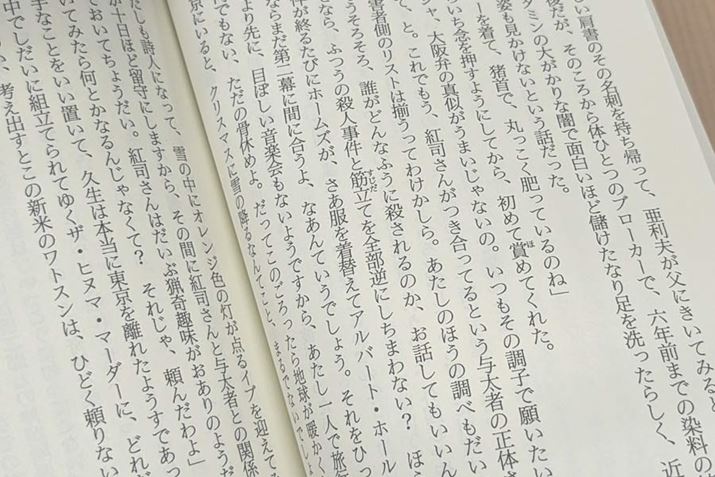 い肩書のその名刺を持ち帰って、亜利夫が父にきいてみると
後だが、そのころから体ひとつのブローカーで、六年前までの染料の
タミンの大がかりな闇で面白いほど儲けたなり足を洗ったらしく、近
姿も見かけないという話だった。
ーを着て、猪首で、丸っこく肥っているのね」
いち念を押すようにしてから、初めて賞めてくれた。
ャ、大阪弁の真似がうまいじゃないの。いつもその調子で願いたい
て、と。これでもう、紅司さんがつき合ってるという与太者の正体さ
害者側のリストは揃うってわけかしら。あたしのほうの調べもだい
うそろそろ、誰がどんなふうに殺されるのか、お話してもいいん
となら、ふつうの殺人事件と筋立てを全部逆にしちまわない？ ほう
件が終るたびにホームズが、さあ服を着替えてアルバート・ホール
ならまだ第二幕に間に合うよ、なあんていうでしょう。それをひっ
より先に、目ぼしい音楽会もないようですから、あたし一人で旅
れでもない、ただの骨休めよ。だってこのごろったら地球が暖かく
京にいると、クリスマスに雪の降るなんてこと、まるでないでし
たしも詩人になって、雪の中にオレンジ色の灯が点るイブを迎えてみ
が十日ほど留守にしますから、その間に紅司さんと与太者との関係
ておいてちょうだい。紅司さんはだいぶ猟奇趣味がおありのようだ
いてみたら何とかなるんじゃなくて？ それじゃ、頼んだわよ」
手なことをいい置いて、久生は本当に東京を離れたようすであっ
中でしだいに組立てられてゆくザ・ヒヌマ・マーダーに、どれだ
考え出すとこの新米のワトスンは、ひどく頼りない